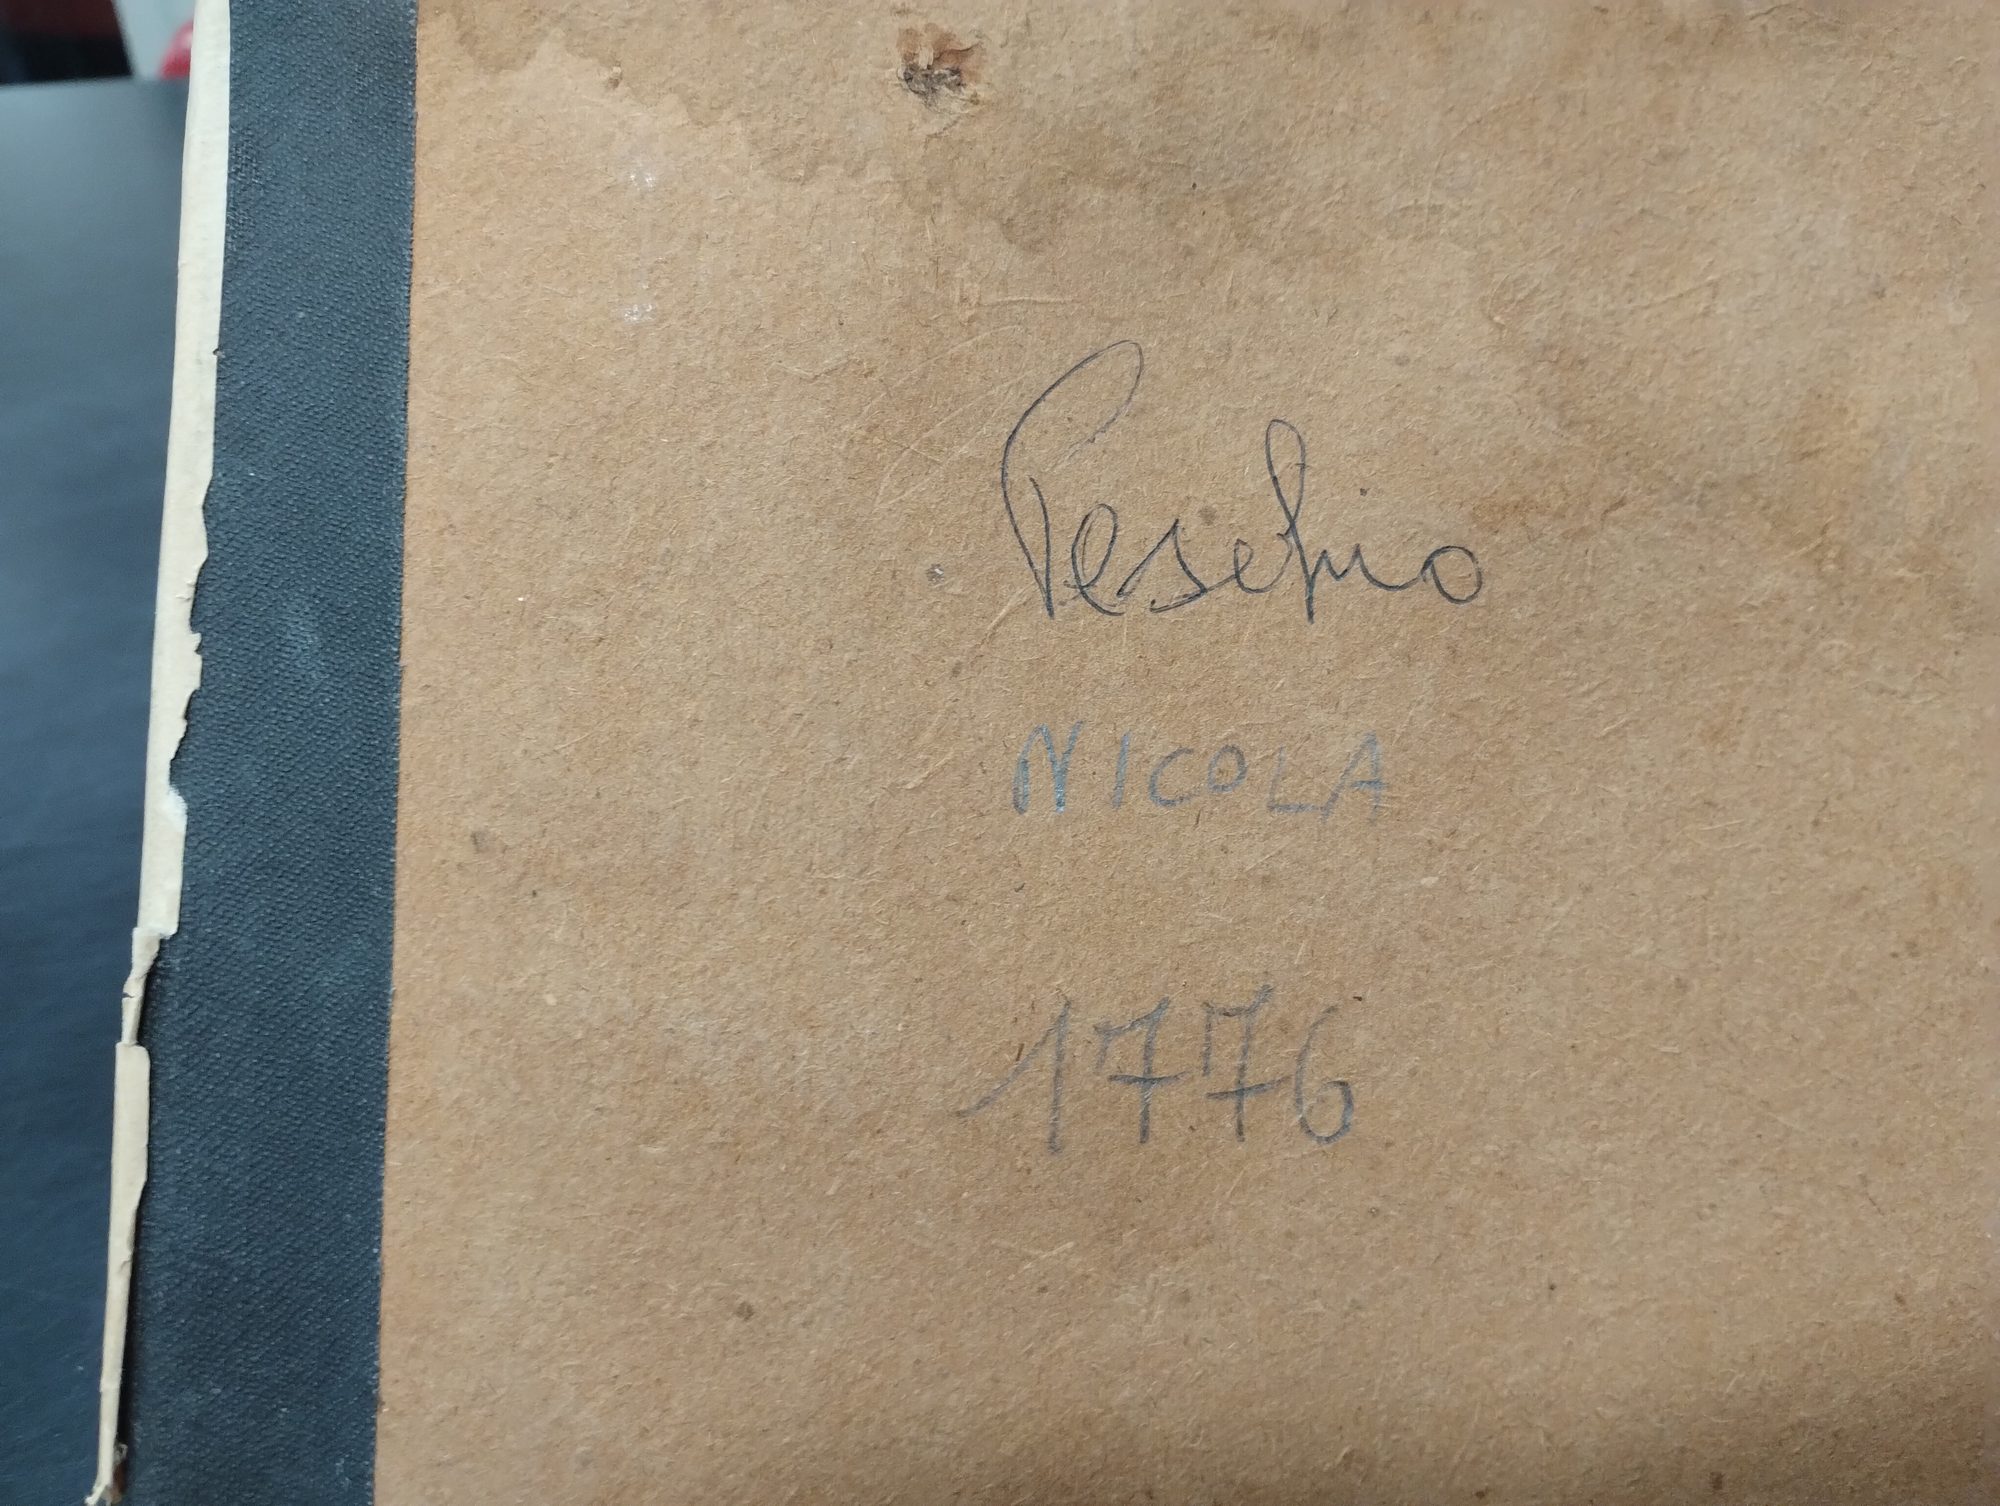 Peschio
NICOLA
1776